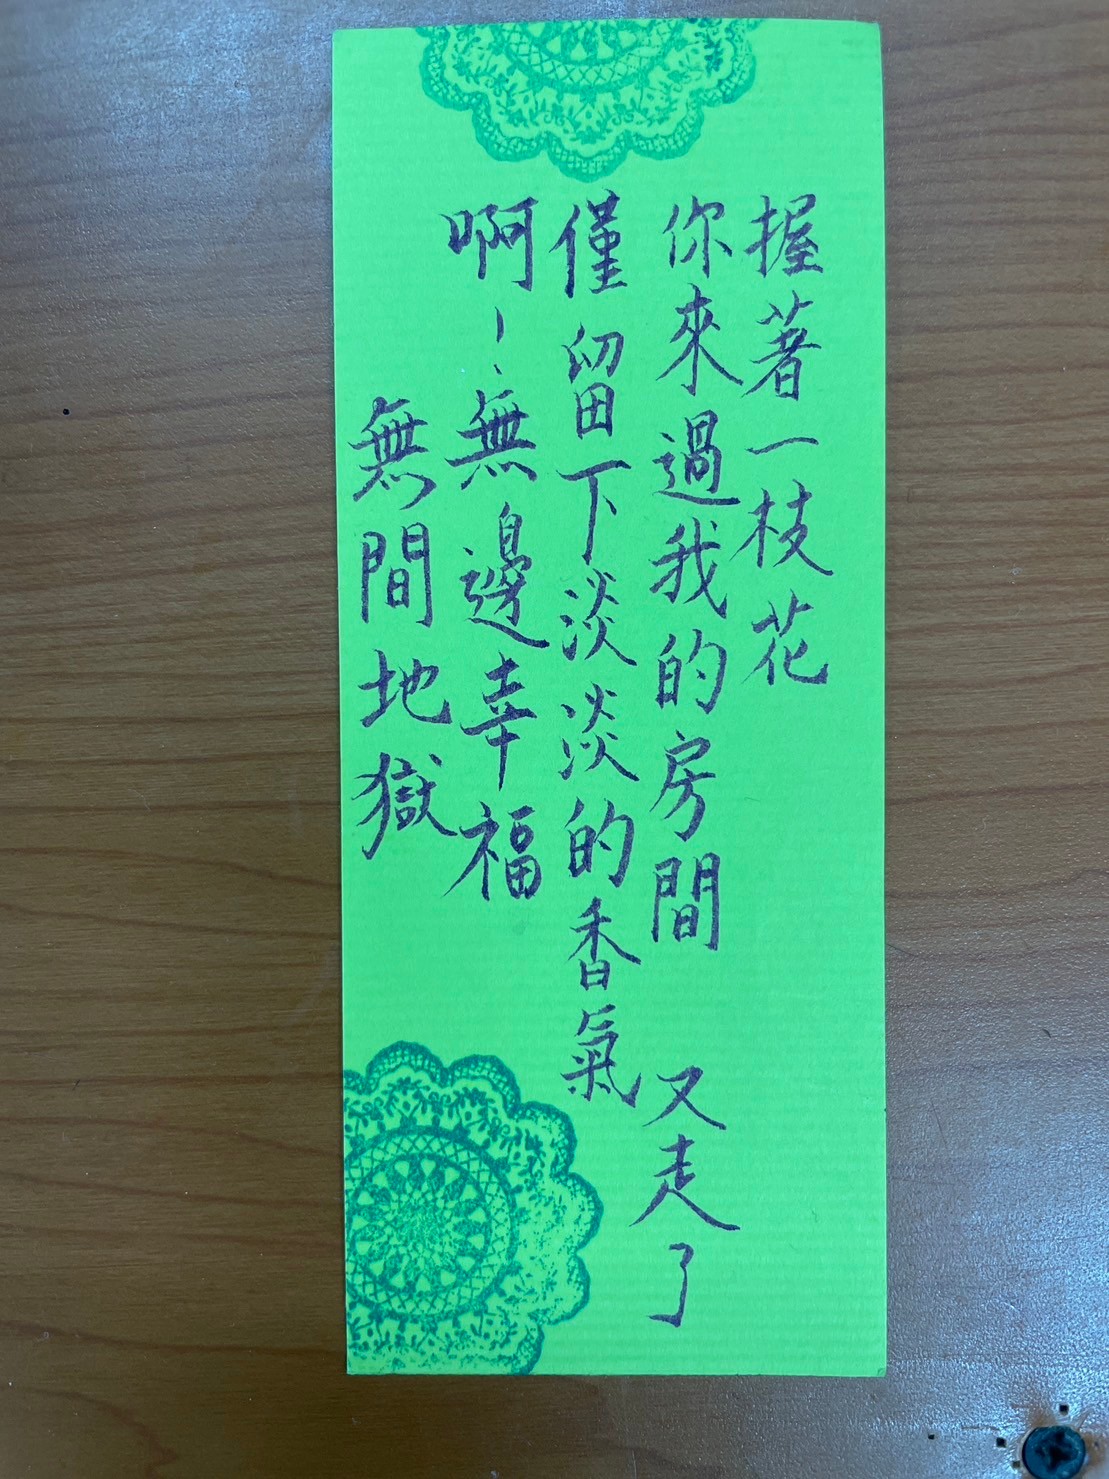 握著一枝花
你來過我的房間 又走了
僅留下淡淡的香氣
啊!、無邊幸福
無間地獄